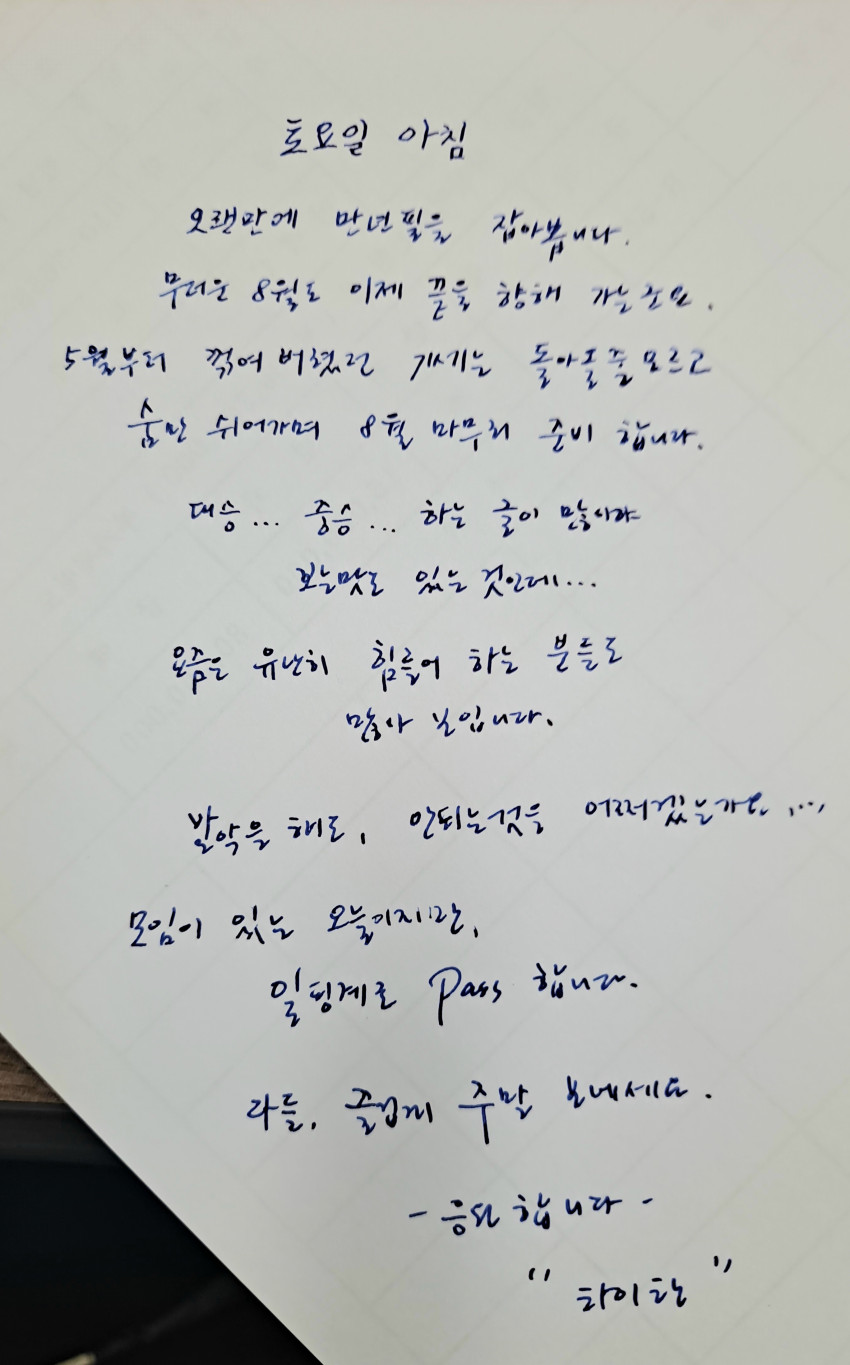 토요일 아침
오랜만에 만년필을 잡아봅니다.
무더운 8월도 이제 끝을 향해 가는군요.
5월부터 꺾여 버렸던 기세는 돌아올줄 모르고
숨만 쉬어가며 8월 마무리 준비 합니다.
대승... 중승... 하는 글이 많아야
보는맛도 있는 것인데...
요즘은 유난히 힘들어 하는 분들도
많아 보입니다.
발악을 해도, 안되는것을 어쩌겠는가요....
모임이 있는 오늘이지만,
일핑계로 Pass 합니다.
다들, 즐겁게 주말 보내세요.
- 응원 합니다 -
" 타이탄 "